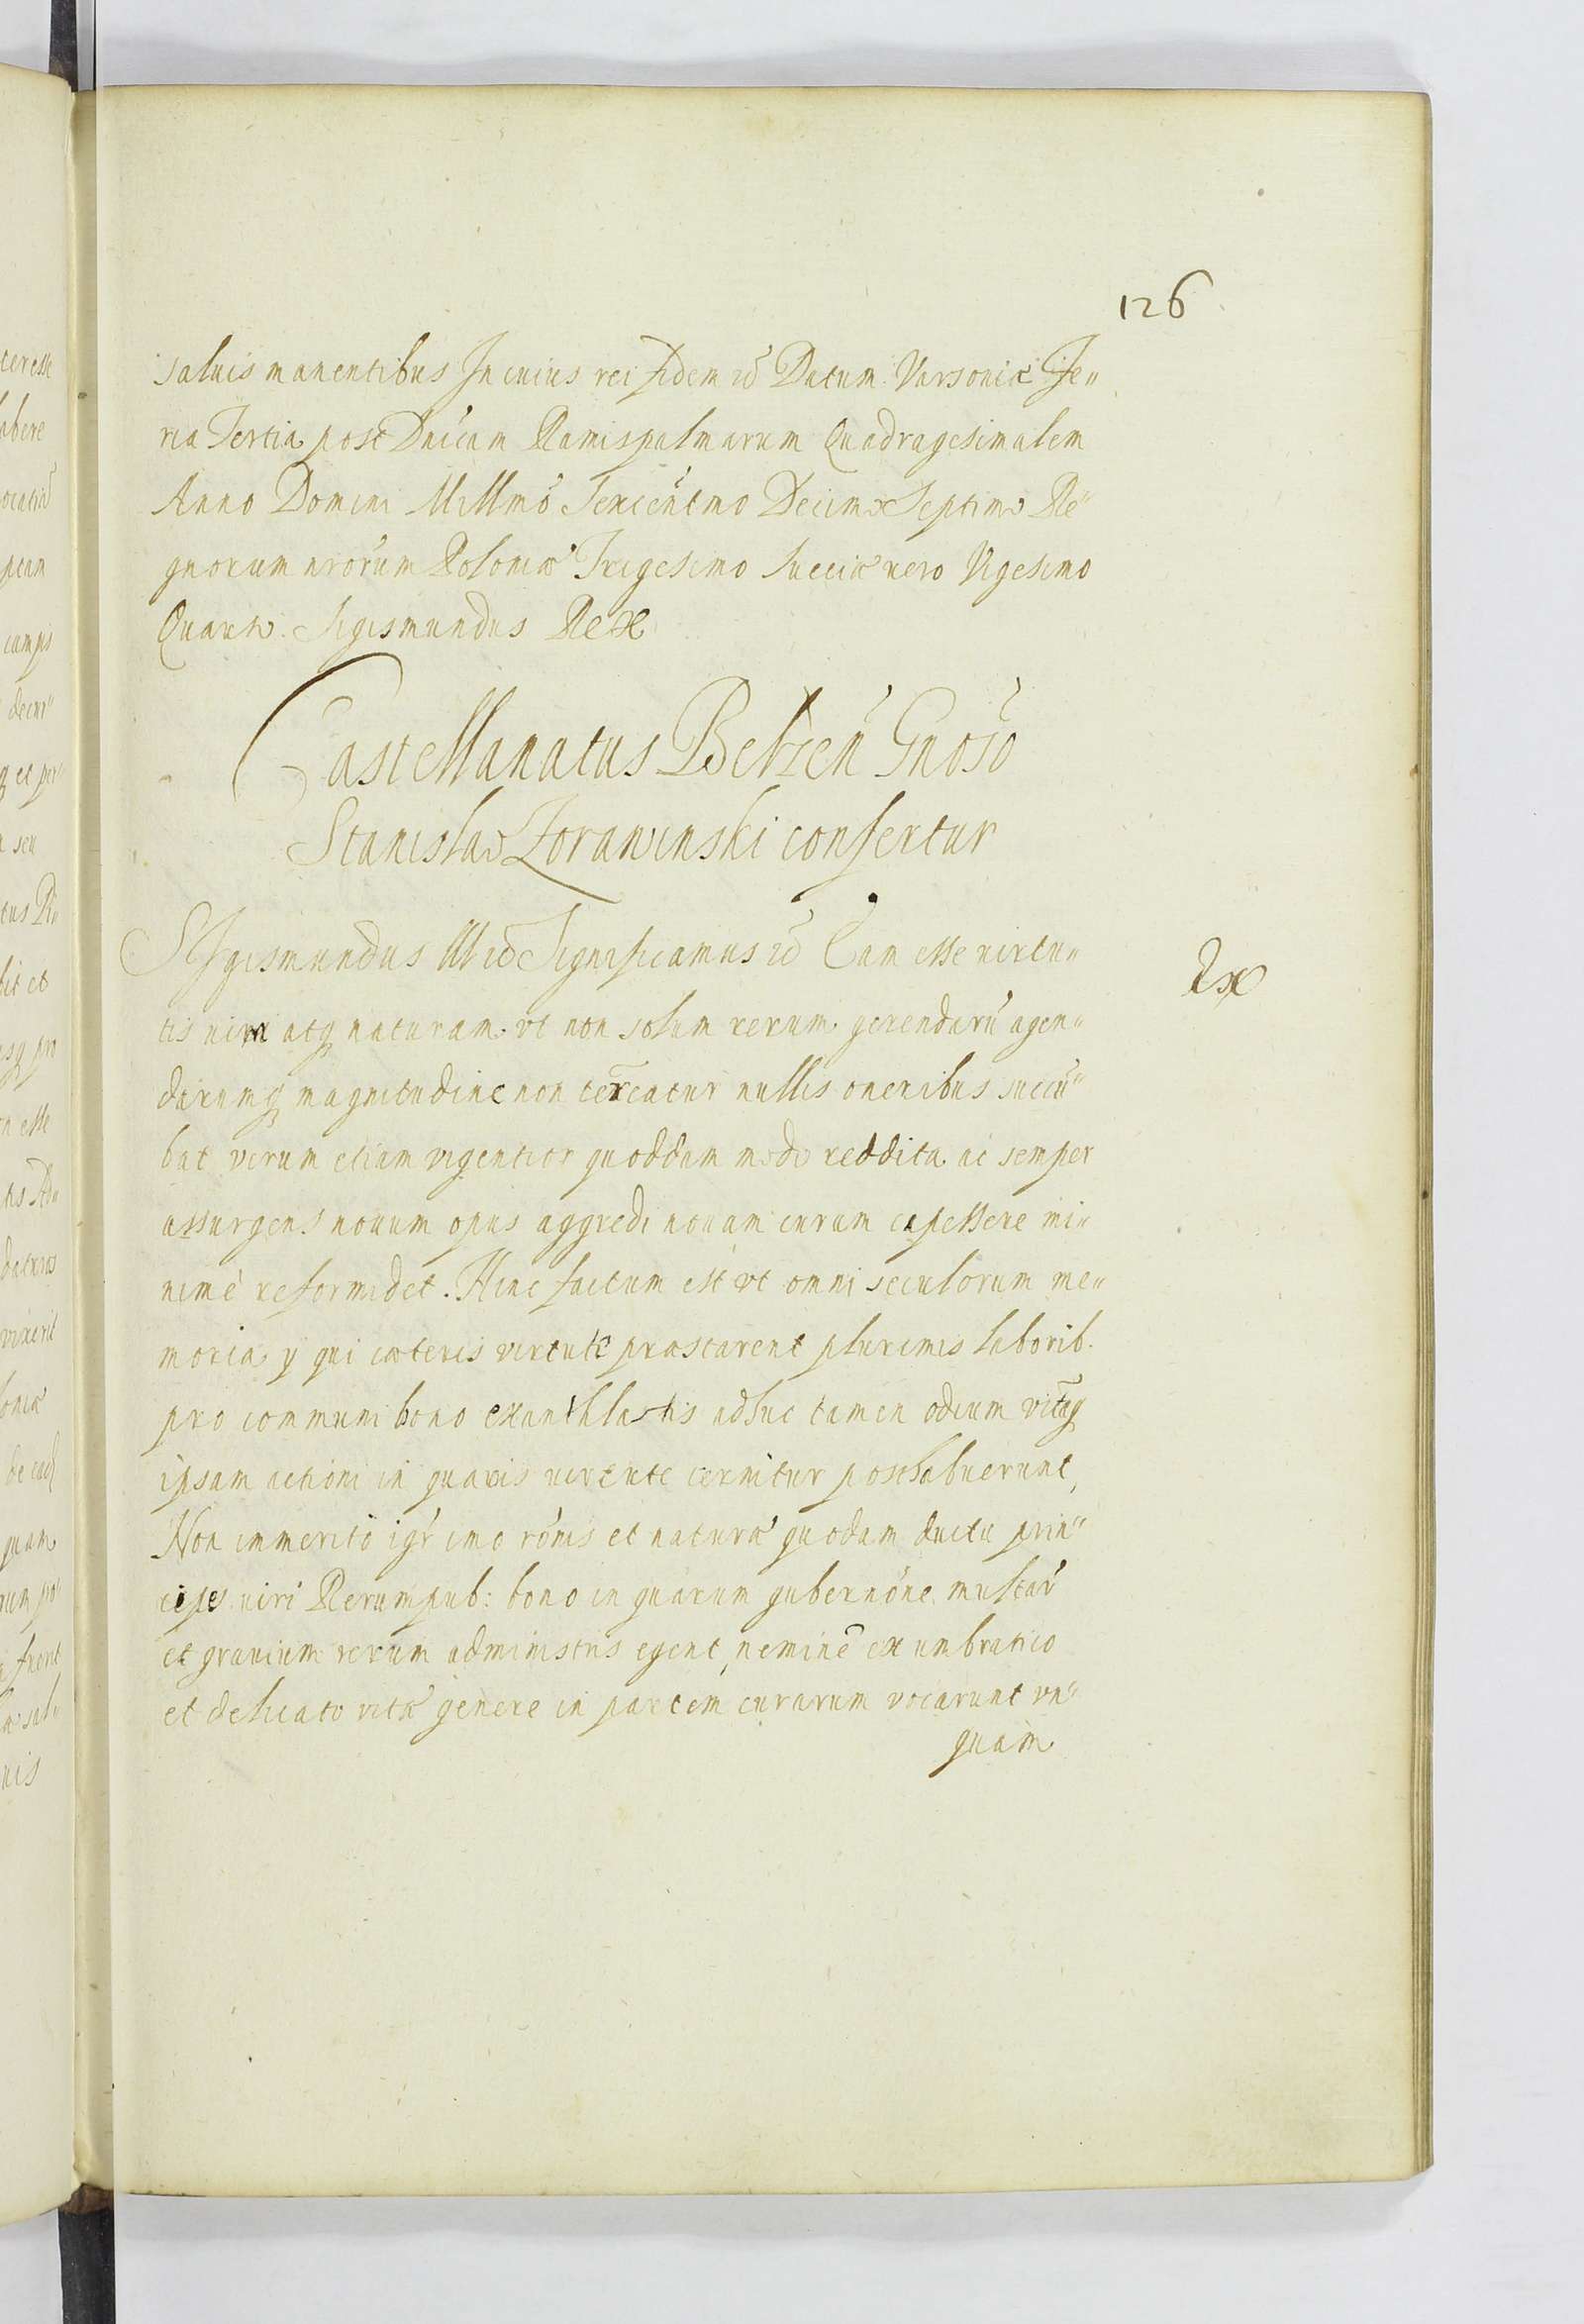 126
saluis manentibus In cuius rei fidem etc̃ Datum Varsoniæ Fe„
ria Tertia post Dnicam Ramispalmarum Quadragesimalem
Anno Domini Millmo Sexcentmo Decimo Septimo Re„
gnorum nrorum Poloniæ Trigesimo Sueciæ uero Vigesimo
Quarto. Sigismundus Rex
Castellanatus Belzen Gnoso
Stanislao Zorawinski confertur
SIgismundus III etc̃ Significamus etc̃ Eam esse uirtu„
tis uim atq naturam. vt non solum rerum gerendarũ agen„
darumq magnitudine non terreatur nullis oneribus succũ„
bat verum etiam vigentior quoddam modo reddita ac semper
assurgens nouum opus aggredi nouam curam capessere mi„
nimè reformidet. Hinc factum est vt omni seculorum me„
moria y qui cæteris virtute præstarent plurimis laborib.
pro communi bono exanthlatis adhuc tamen odium vitãq
ipsam actioni in quauis uirtute cernitur posthabuerunt,
Non immerito igr imo ronis et naturæ quodam ductu prin„
cipes uiri Rerumpub: bono in quarum gubernone multarũ
et grauium rerum administris egent, neminẽ ex umbratico
et delicato vitæ genere in partem curarum vocarunt vn„
quam